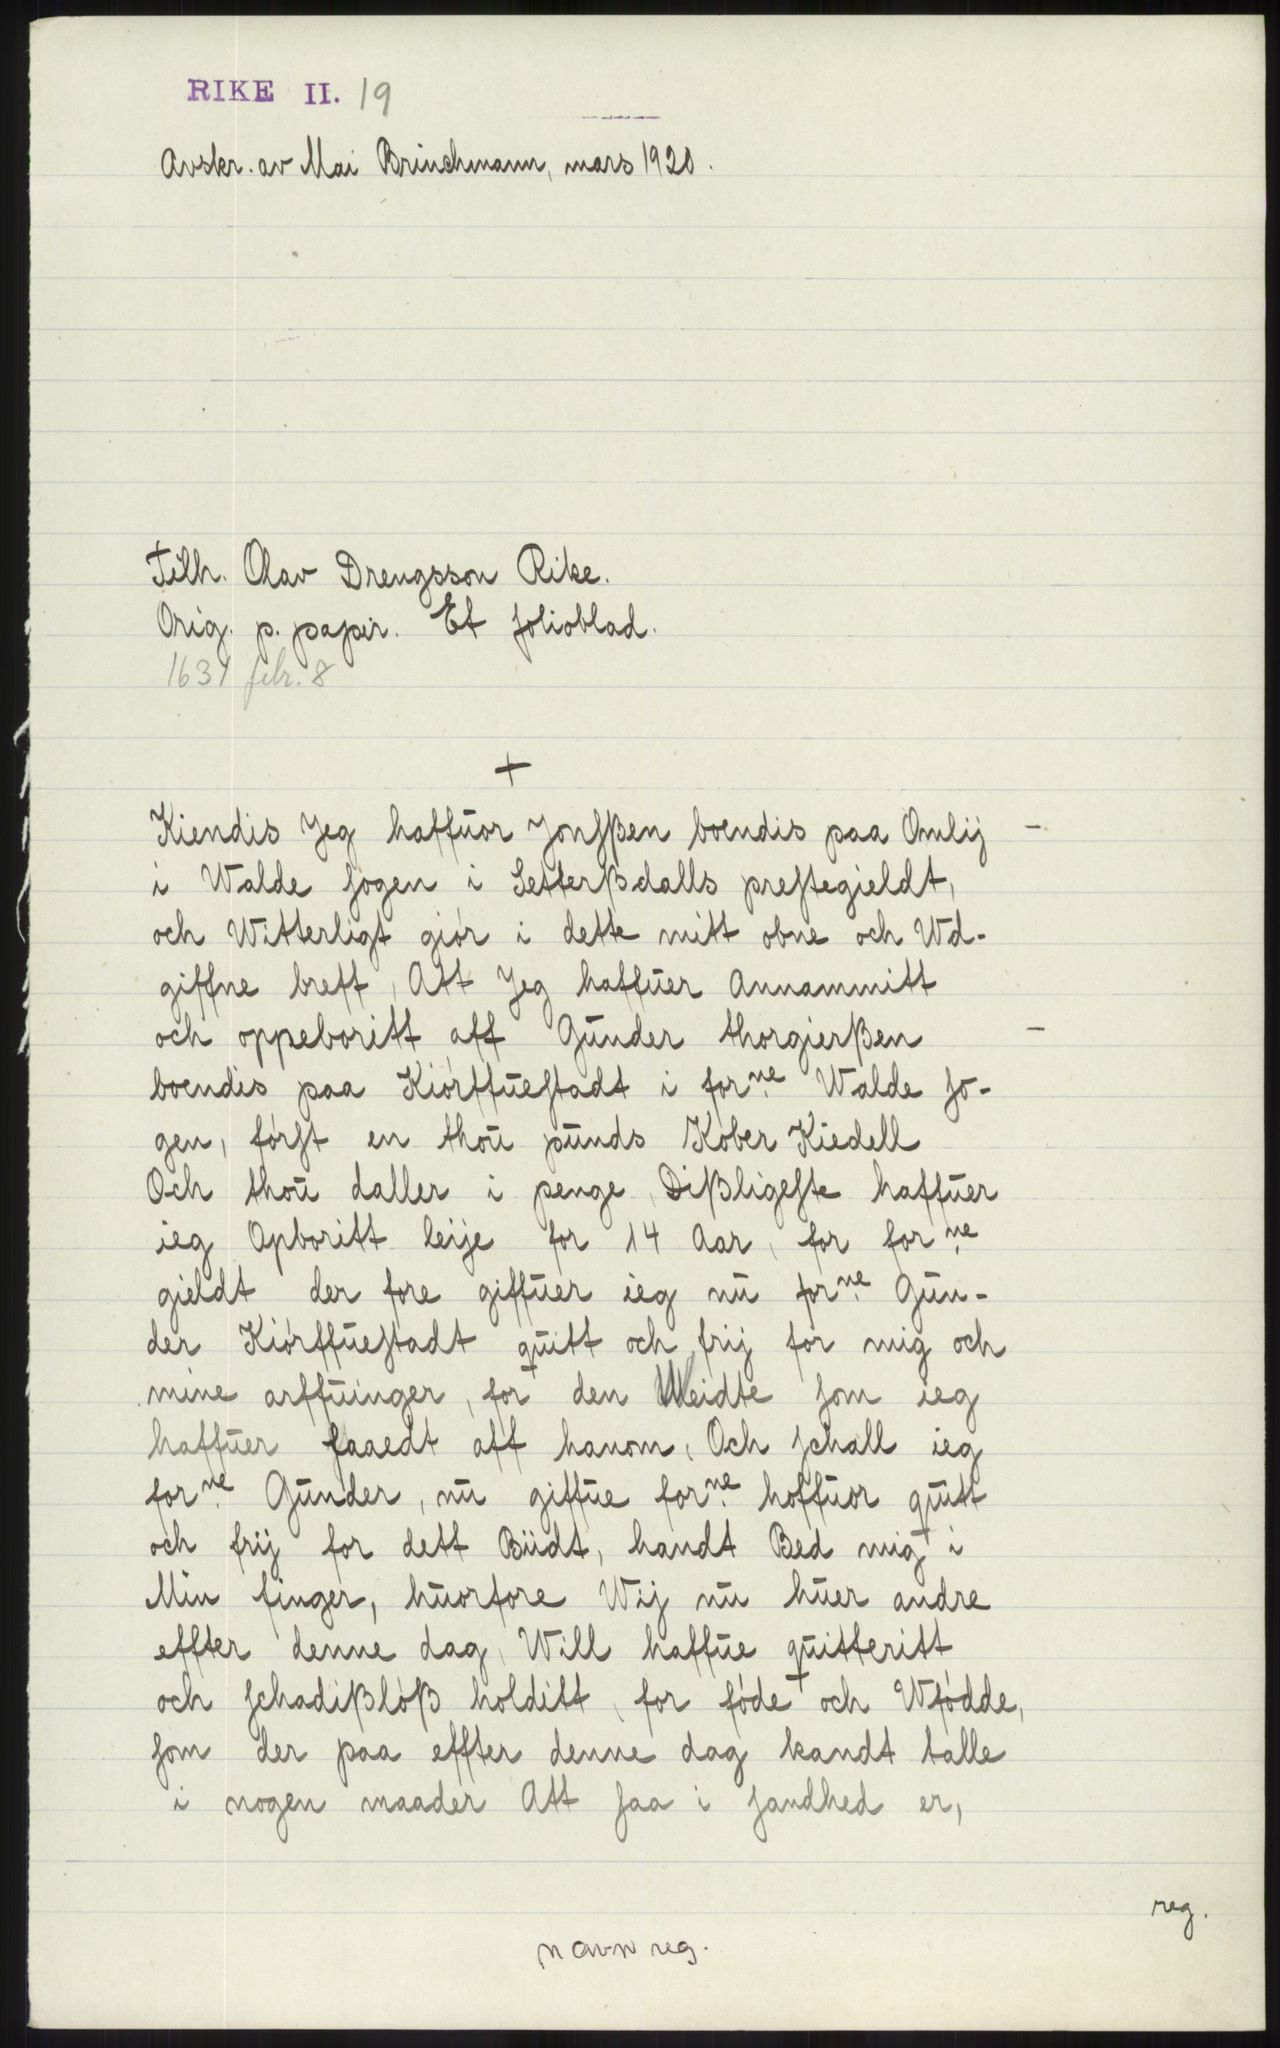 RIKE II. 19
Avskr. av Mai Brinchmann, mars 1920.
Tilh. Olav Drengsson Rike.
Orig. p. papir. Et folioblad.
1631 febr. 8
+
Kiendis Jeg haffuor Jonsßen boendis paa Omlij –
i Walde sogen i Setterßdalls prestegieldt,
och Witterligt giør i dette mitt obne och Wd-
giffne breff, Att Jeg haffuer Annammitt
och oppeboritt aff Gunder thorgierßen –
boendis paa Kiørffuestadt i forne Walde so-
gen, først en thou punds Kober Kiedell
Och thou daller i penge, Dißligeste haffuer
ieg Opboritt leije for 14 Aar, for forne
gieldt der fore giffuer ieg nu forne Gun-
der Kiørffuestadt quitt och frij for mig och
mine arffuinger, for den Weidte som ieg
haffuer faaedt aff hanom, Och schall ieg
forne Gunder, nu giffue forne hoffuor quitt
och frij for dett Biidt, handt Bed mig i
Min finger, huorfore Wij nu huer andre
effter denne dag, Will haffue quitteritt
och schadißløß holditt, for føde och Wfødde,
som der paa effter denne dag kandt talle
i nogen maader Att saa i sandhed er,
reg.
navn reg.